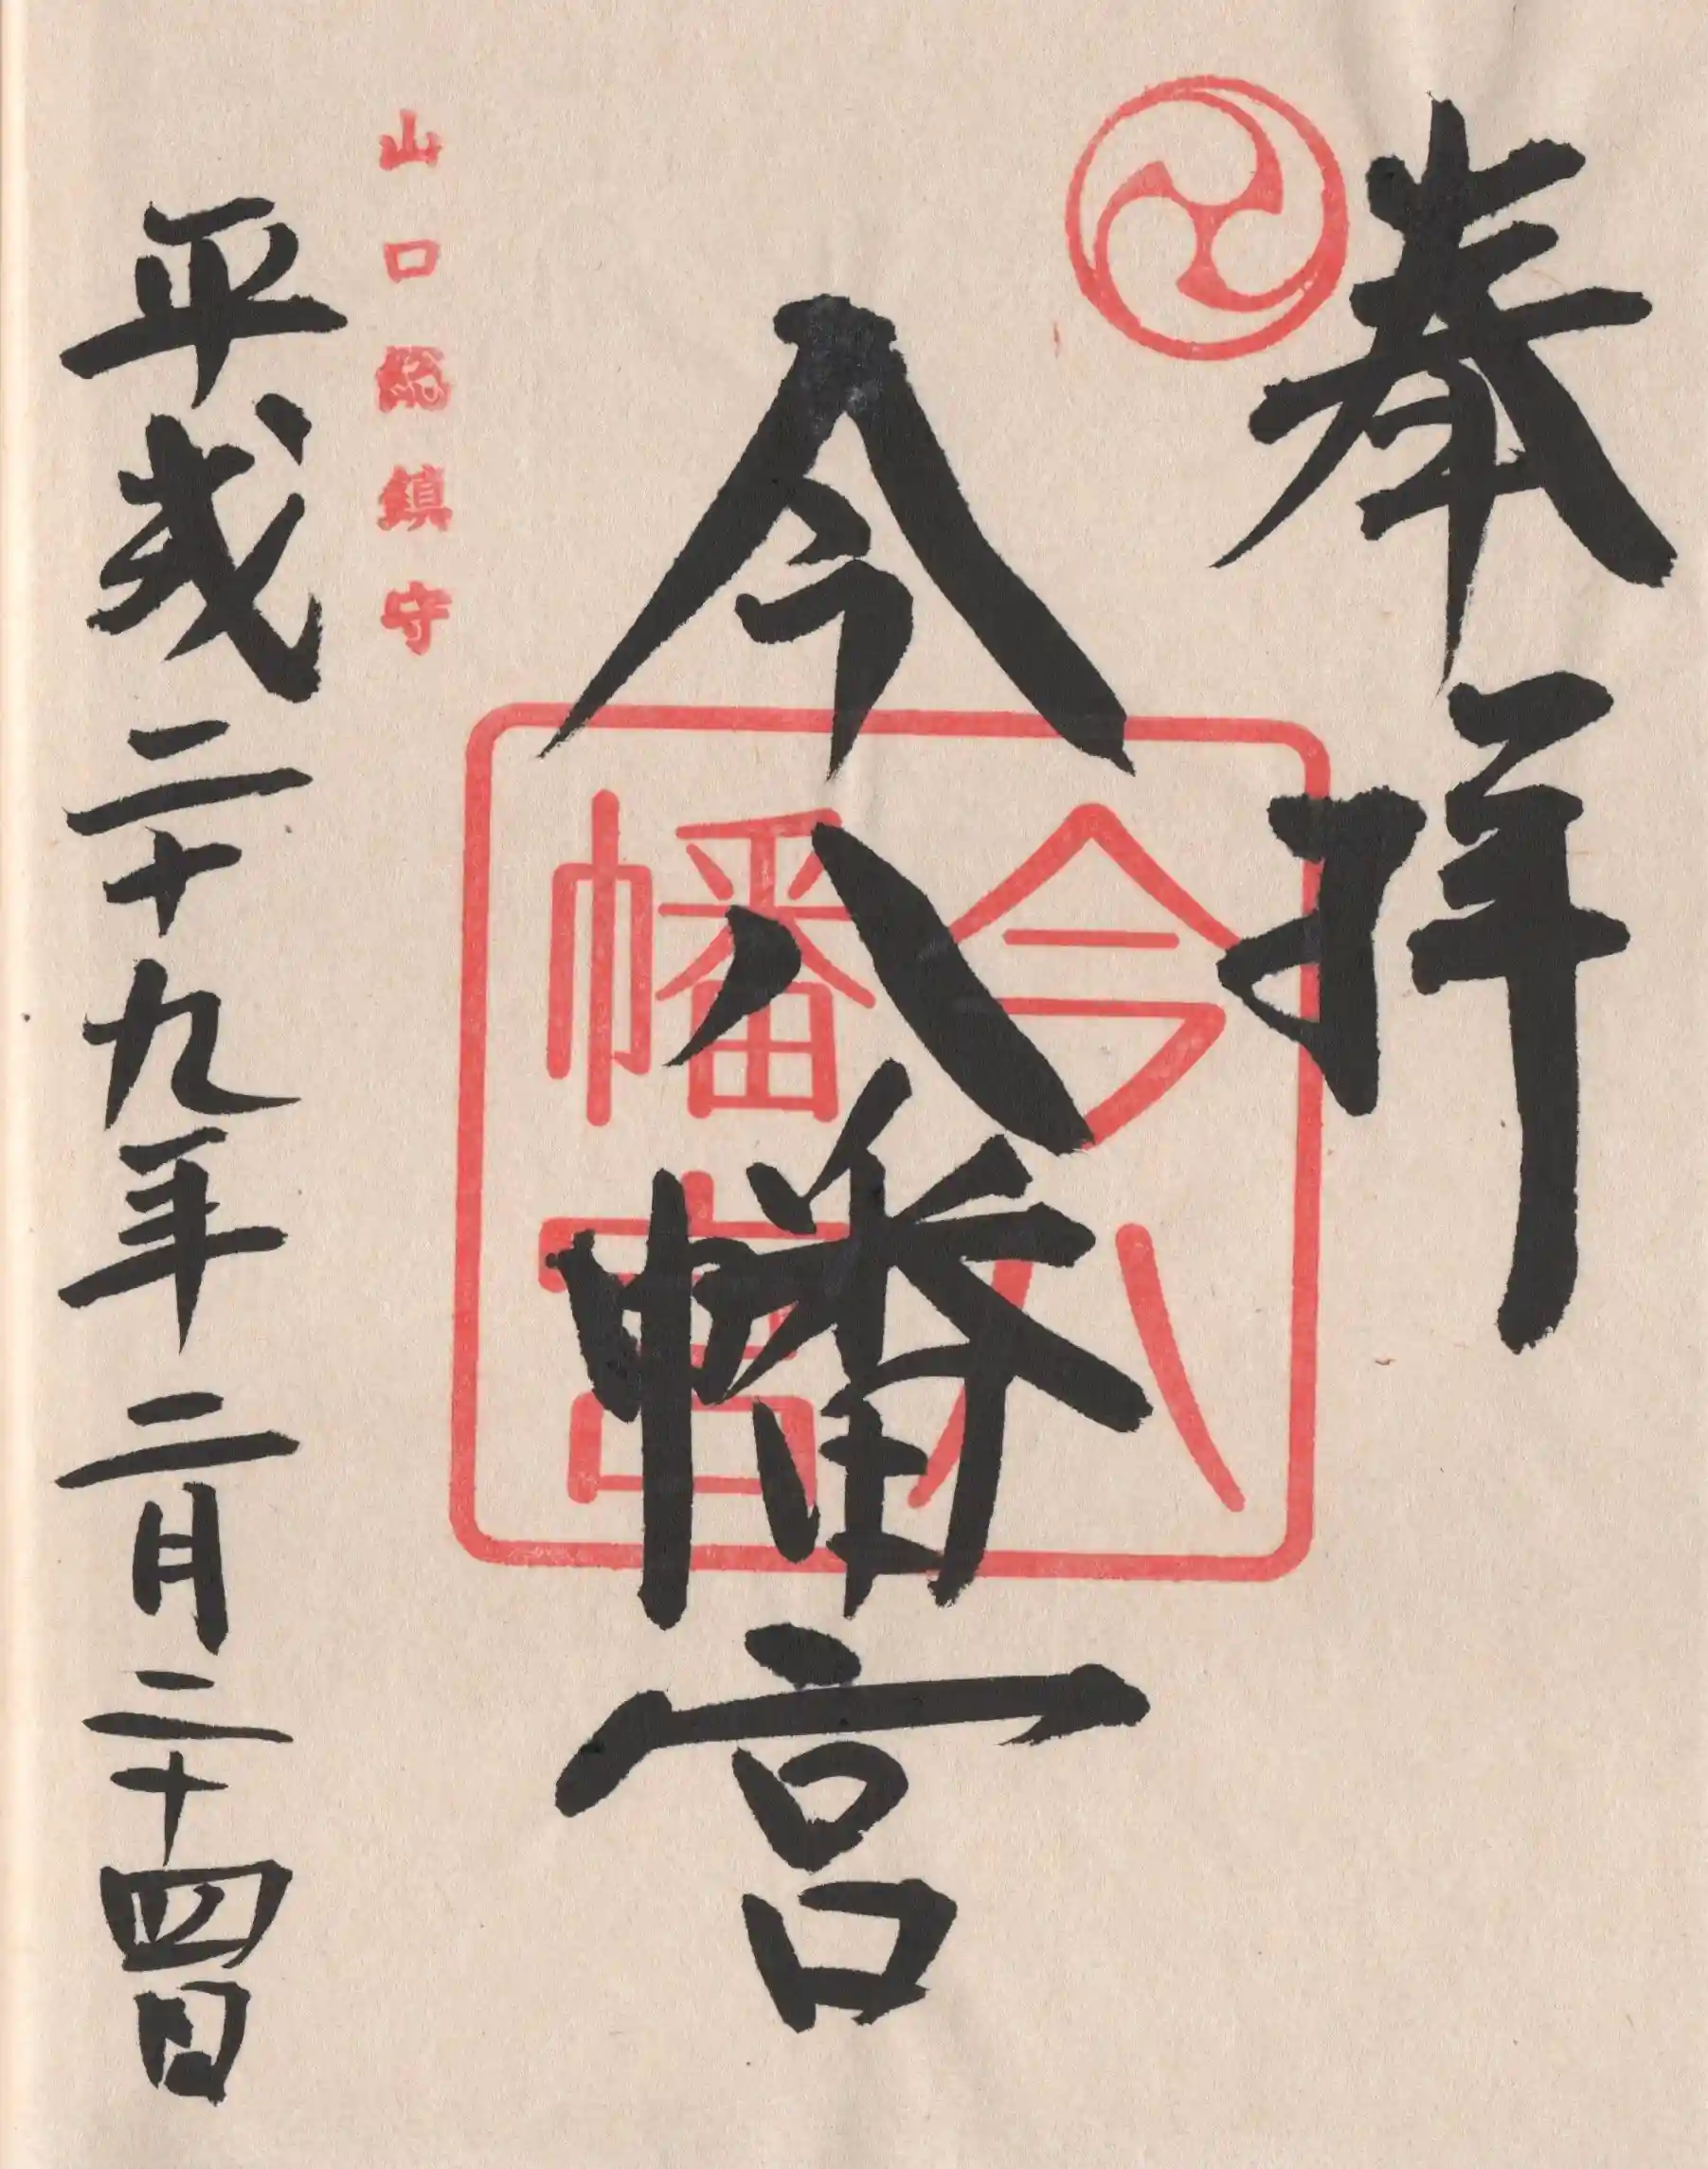 奉拝
今八幡宮
今八
幡宮
山口総鎮守
平成二十九年二月二十四日